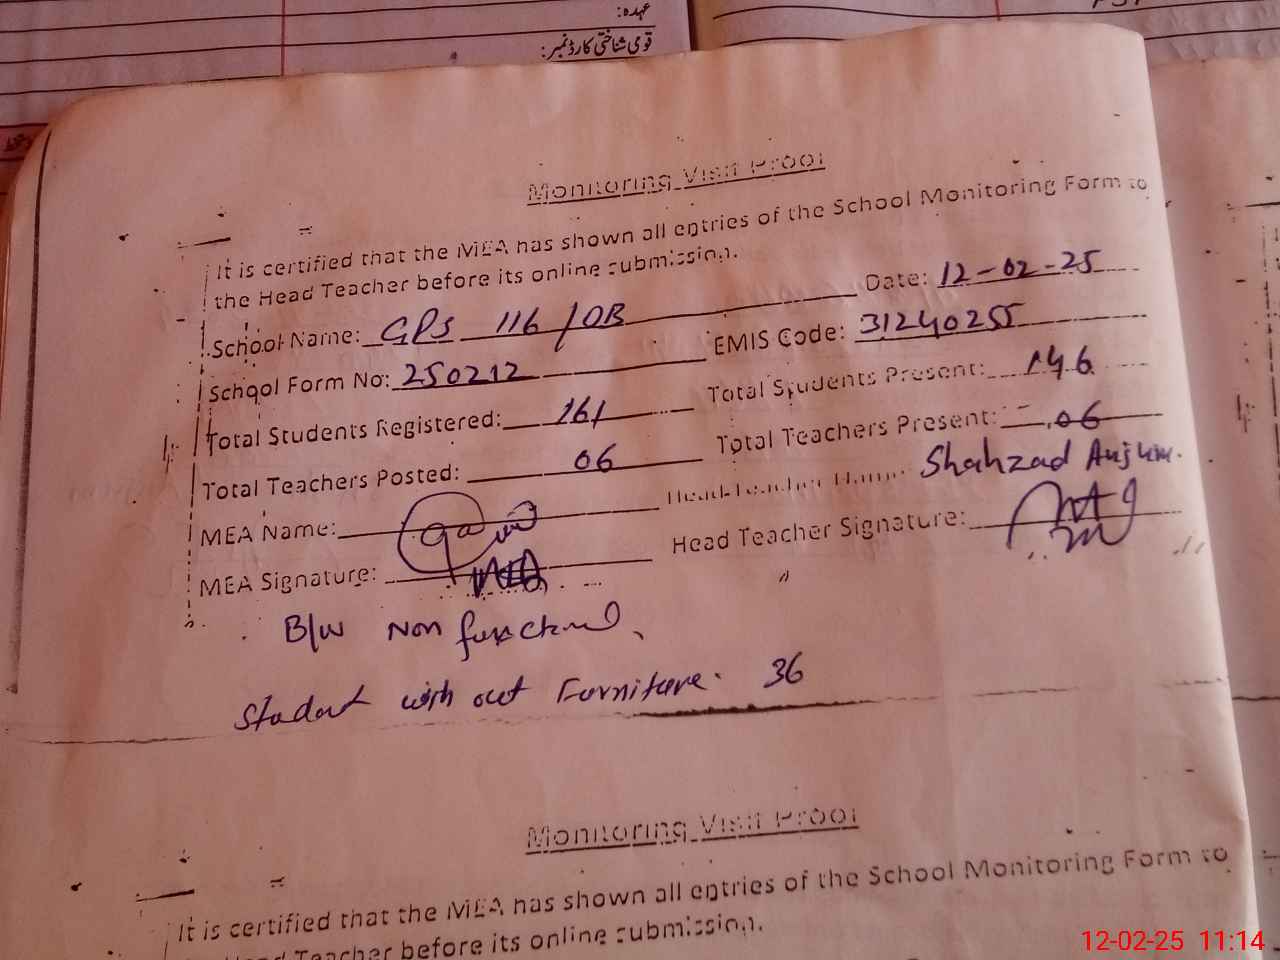 عہدہ:
قومی شناختی کارڈ نمبر:
Monitoring Visit Proof
It is certified that the MEA has shown all entries of the School Monitoring Form to
the Head Teacher before its online submission.
School Name: GPS 116/DB Date: 12-02-25
School Form No: 250212 EMIS Code: 31240255
Total Students Registered: 161 Total Students Present: 146
Total Teachers Posted: 06 Total Teachers Present: 06
MEA Name: Head Teacher Name: Shahzad Anjum.
MEA Signature: Head Teacher Signature:
B/W Non functional,
Student with out Furniture. 36
Monitoring Visit Proof
It is certified that the MEA has shown all entries of the School Monitoring Form to
Head Teacher before its online submission.
12-02-25 11:14